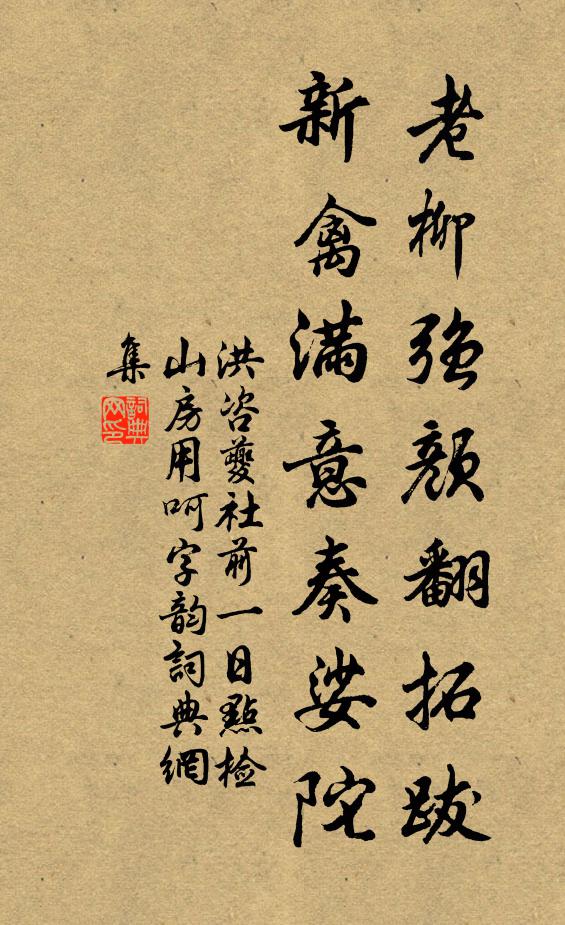 老柳强颜翻拓跋
新禽满意奏娑陀
洪咨夔社前一日點檢
山房用呵字韵詞典網
集
詞典
网印